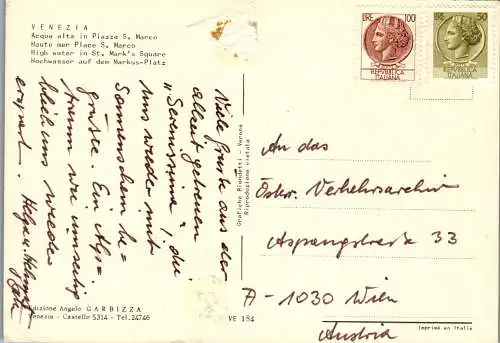 VENEZIA
Acqua alta in Piazza S. Marco
Haute mer Place S. Marco
High water in St. Mark's Square
Hochwasser auf dem Markus-Platz
LIRE 100
REPVBBLICA
ITALIANA
LIRE 50
REPVBBLICA
ITALIANA
Viele Grüße aus der
allzeit getreuen
"Serenissima", die
uns wieder mit
Sonnenschein be=
grüßte. Ein Alp=
traum wie umseitig
blieb uns wieder
erspart.
Helga u. Helmut
Grafiche Biondetti - Verona
Riproduzione vietata
An das
Österr. Verkehrsarchiv
Aspangstraße 33
A-1030 Wien
Austria
Edizione Angelo GARBIZZA
Venezia - Castello 5314 - Tel. 24746
VE 184
Imprimé en Italie